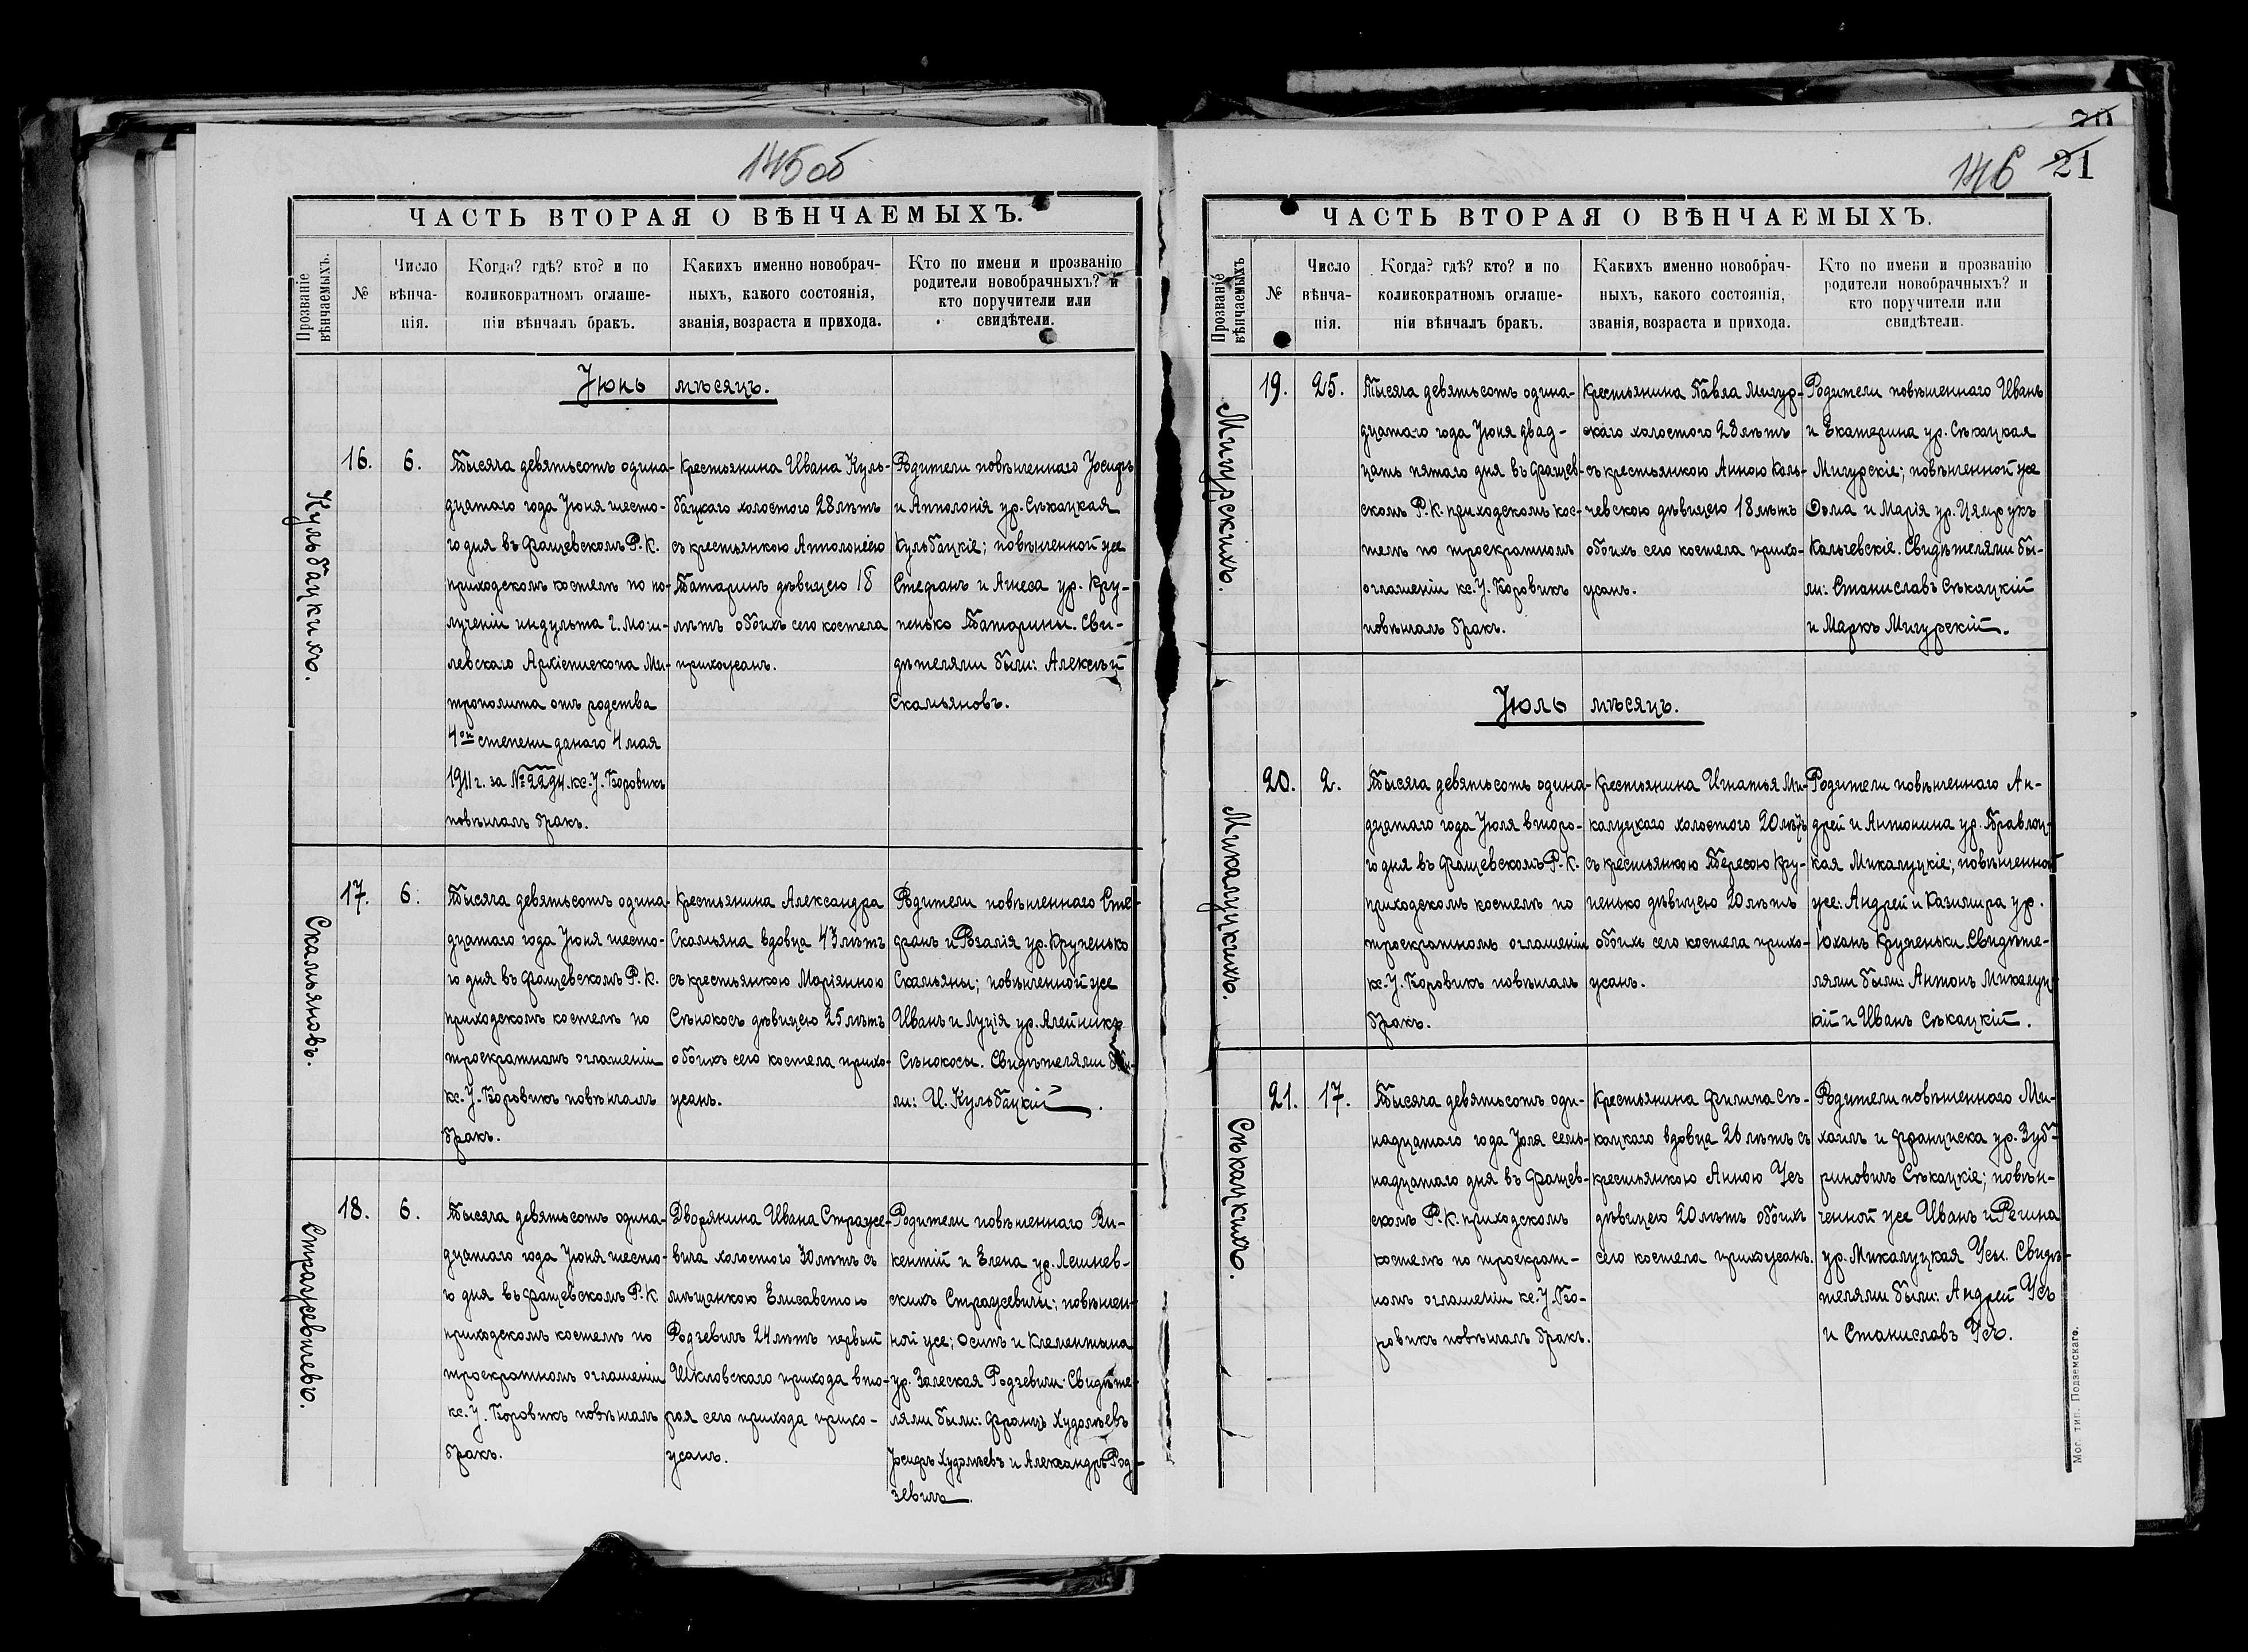 145 об
ЧАСТЬ ВТОРАЯ О ВѢНЧАЕМЫХЪ.
Прозваніе вѣнчаемыхъ.
№
Число вѣнча-нія.
Когда? гдѣ? кто? и по
коликократномъ оглаше-
ніи вѣнчалъ бракъ.
Какихъ именно новобрач-
ныхъ, какого состоянія,
званія, возраста и прихода.
Кто по имени и прозванію
родители новобрачныхъ? и
кто поручители или
свидѣтели.
Іюнь мѣсяцъ.
Кульбацкихъ.
16.
6.
Тысяча девятьсотъ одина-
дцатаго года Іюня шесто-
го дня въ Фащевскомъ Р. К.
приходскомъ костелѣ по по-
лученіи индульта г. Моги-
левскаго Архіепископа Ми-
трополита отъ родства
4ой степени данаго 4 мая
1911 г. за № 2294. кс. І. Боровикъ
повѣнчалъ бракъ.
Крестьянина Ивана Куль-
бацкаго холостого 28 лѣтъ
съ крестьянкою Апполоніею
Татаринъ дѣвицею 18
лѣтъ обоихъ сего костела
прихожанъ.
Родители повѣнченнаго Іосифъ
и Апполонія ур. Сѣкацкая
Кульбацкіе; повѣнченной же
Стефанъ и Агнеса ур. Кру-
пенько Татарины. Сви-
дѣтелями были: Алексѣй
Скамьяновъ.
Скамьяновъ.
17.
6.
Тысяча девятьсотъ одина-
дцатаго года Іюня шесто-
го дня въ Фащевскомъ Р. К.
приходскомъ костелѣ по
троекратномъ оглашеніи
кс. І. Боровикъ повѣнчалъ
бракъ.
Крестьянина Александра
Скамьяна вдовца 43 лѣтъ
съ крестьянкою Маріянною
Сѣнокосъ дѣвицею 25 лѣтъ
обоихъ сего костела прихо-
жанъ.
Родители повѣнченнаго Сте-
фанъ и Розалія ур. Крупенько
Скамьяны; повѣнченной же
Иванъ и Луція ур. Алейникъ
Сѣнокосы. Свидѣтелями бы-
ли: И. Кульбацкій.
Стражевичевъ.
18.
6.
Тысяча девятьсотъ одина-
дцатаго года Іюня шесто-
го дня въ Фащевскомъ Р. К.
приходскомъ костелѣ по
троекратномъ оглашеніи
кс. І. Боровикъ повѣнчалъ
бракъ.
Дворянина Ивана Страже-
вича холостого 30 лѣтъ съ
мѣщанкою Елисаветою
Родзевичъ 24 лѣтъ первый
Шкловскаго прихода вто-
рая сего прихода прихо-
жанъ.
Родители повѣнченнаго Ви-
кентій и Елена ур. Лешнев-
скихъ Стражевичи; повѣнчен-
ной же: Осипъ и Клементина
ур. Залеская Родзевичи. Свидѣте-
лями были: Францъ Худолѣевъ
Іосифъ Худолѣевъ и Александръ Род-
зевичъ.
70
146 21
ЧАСТЬ ВТОРАЯ О ВѢНЧАЕМЫХЪ.
Прозваніе вѣнчаемыхъ
№
Число вѣнча-нія.
Когда? гдѣ? кто? и по
коликократномъ оглаше-
ніи вѣнчалъ бракъ.
Какихъ именно новобрач-
ныхъ, какого состоянія,
званія, возраста и прихода.
Кто по имени и прозванію
родители новобрачныхъ? и
кто поручители или
свидѣтели.
Мигурскихъ.
19.
25.
Тысяча девятьсотъ одина-
дцатаго года Іюня двад-
цать пятаго дня въ Фащев-
скомъ Р. К. приходскомъ кос-
телѣ по троекратномъ
оглашеніи кс. І. Боровикъ
повѣнчалъ бракъ.
Крестьянина Павла Мигур-
скаго холостого 28 лѣтъ
съ крестьянкою Анною Каль-
чевскою дѣвицею 18 лѣтъ
обоихъ сего костела прихо-
жанъ.
Родители повѣнченнаго Иванъ
и Екатерина ур. Сѣкацкая
Мигурскіе; повѣнченной же
Ѳома и Марія ур. Цямрукъ
Кальчевскіе. Свидѣтелями бы-
ли: Станиславъ Сѣкацкій
и Маркъ Мигурскій.
Іюль мѣсяцъ.
Микалуцкихъ.
20.
2.
Тысяча девятьсотъ одина-
дцатаго года Іюля второ-
го дня въ Фащевскомъ Р. К.
приходскомъ костелѣ по
троекратномъ оглашеніи
кс. І. Боровикъ повѣнчалъ
бракъ.
Крестьянина Игнатья Ми-
калуцкаго холостого 20 лѣтъ
съ крестьянкою Тересою Кру-
пенько дѣвицею 20 лѣтъ
обоихъ сего костела прихо-
жанъ.
Родители повѣнченнаго Ан-
дрей и Антонина ур. Бравлоц-
кая Микалуцкіе; повѣнченной
же: Андрей и Казимира ур.
Юханъ Крупеньки. Свидѣте-
лями были: Антонъ Микалуц-
кій и Иванъ Сѣкацкій.
Сѣкацкихъ.
21.
17.
Тысяча девятьсотъ оди-
надцатаго года Іюля семь-
надцатаго дня въ Фащев-
скомъ Р. К. приходскомъ
костелѣ по троекрат-
номъ оглашеніи кс. І. Бо-
ровикъ повѣнчалъ бракъ.
Крестьянина Филипа Сѣ-
кацкаго вдовца 26 лѣтъ съ
крестьянкою Анною Усъ
дѣвицею 20 лѣтъ обоихъ
сего костела прихожанъ.
Родители повѣнченнаго Ми-
хаилъ и Франциска ур. Зуб-
риновичъ Сѣкацкіе; повѣн-
ченной же Иванъ и Регина
ур. Микалуцкая Усы. Свидѣ-
телями были: Андрей Усъ
и Станиславъ Усъ.
Мог. тип. Подземскаго.